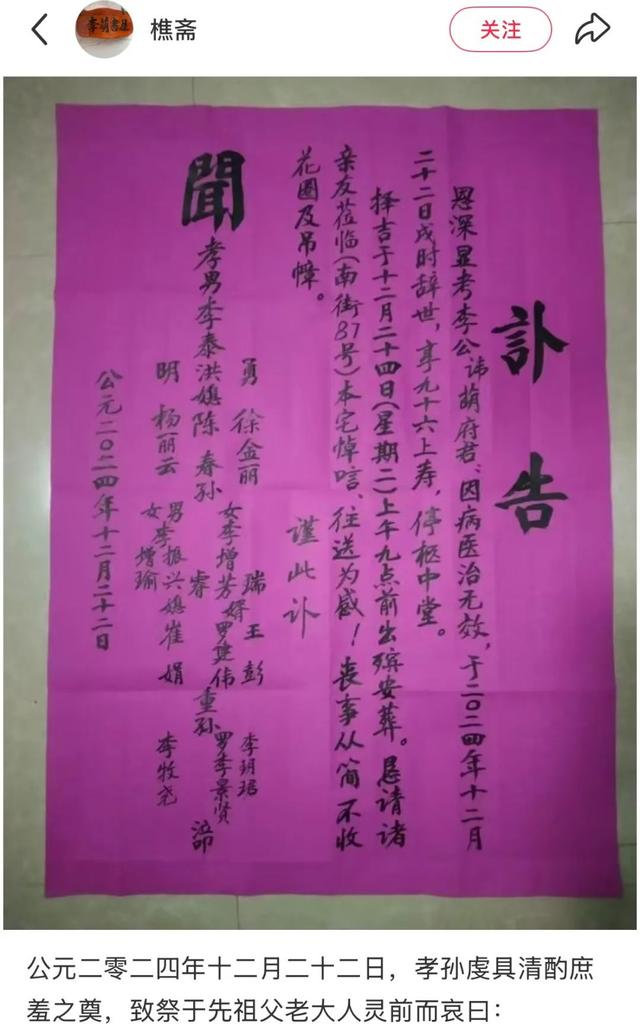 樵斋
关注
訃告
恩深显考李公讳萌府君、因病医治无效,于二〇二四年十二月
二十二日戌时辞世,享九十六上寿,停柩中堂。
择吉于十二月二十四日(星期二)上午九点前出殡安葬。恳请诸
亲友莅临(南街87号)本宅悼唁、往送为感!丧事从简不收
花圈及吊幛。
谨此讣
聞
勇 徐金丽 瑞 王彭 李玥珺
孝男李泰洪媳陈春孙女李增芳婿罗建伟重孙罗李景贤 泣叩
睿
明 杨丽云 男李振兴媳崔娟 李牧尧
女 增瑜
公元二〇二四年十二月二十二日
公元二零二四年十二月二十二日,孝孙虔具清酌庶
羞之奠,致祭于先祖父老大人灵前而哀曰: